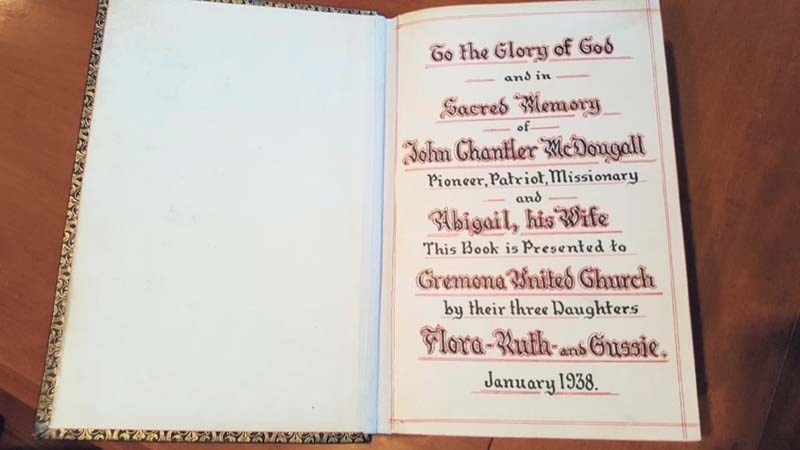 To the Glory of God
and in
Sacred Memory
of
John Chantler McDougall
Pioneer, Patriot, Missionary
and
Abigail, his Wife
This Book is Presented to
Cremona United Church
by their three Daughters
Flora-Ruth-and Gussie.
January 1938.